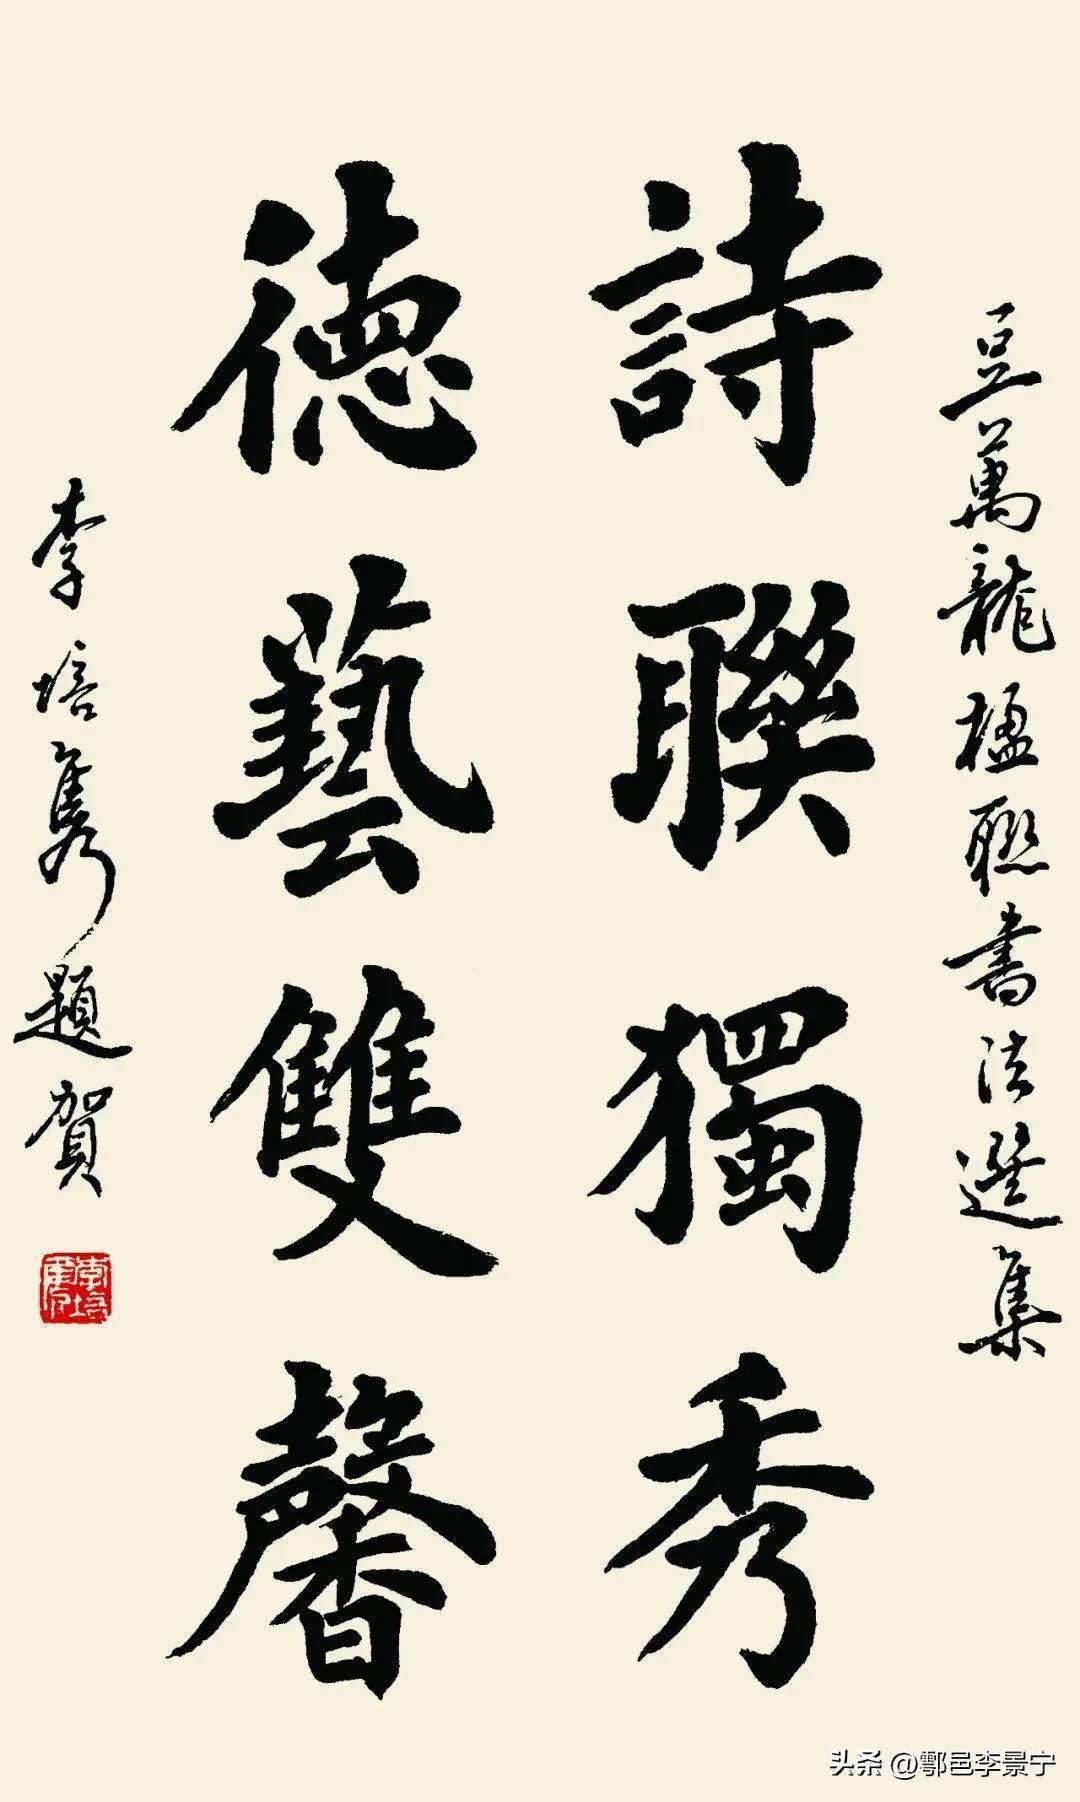 豆萬龍楹聯書法選集
詩聯獨秀
德藝雙馨
李培雋題賀
头条 @鄠邑李景宁